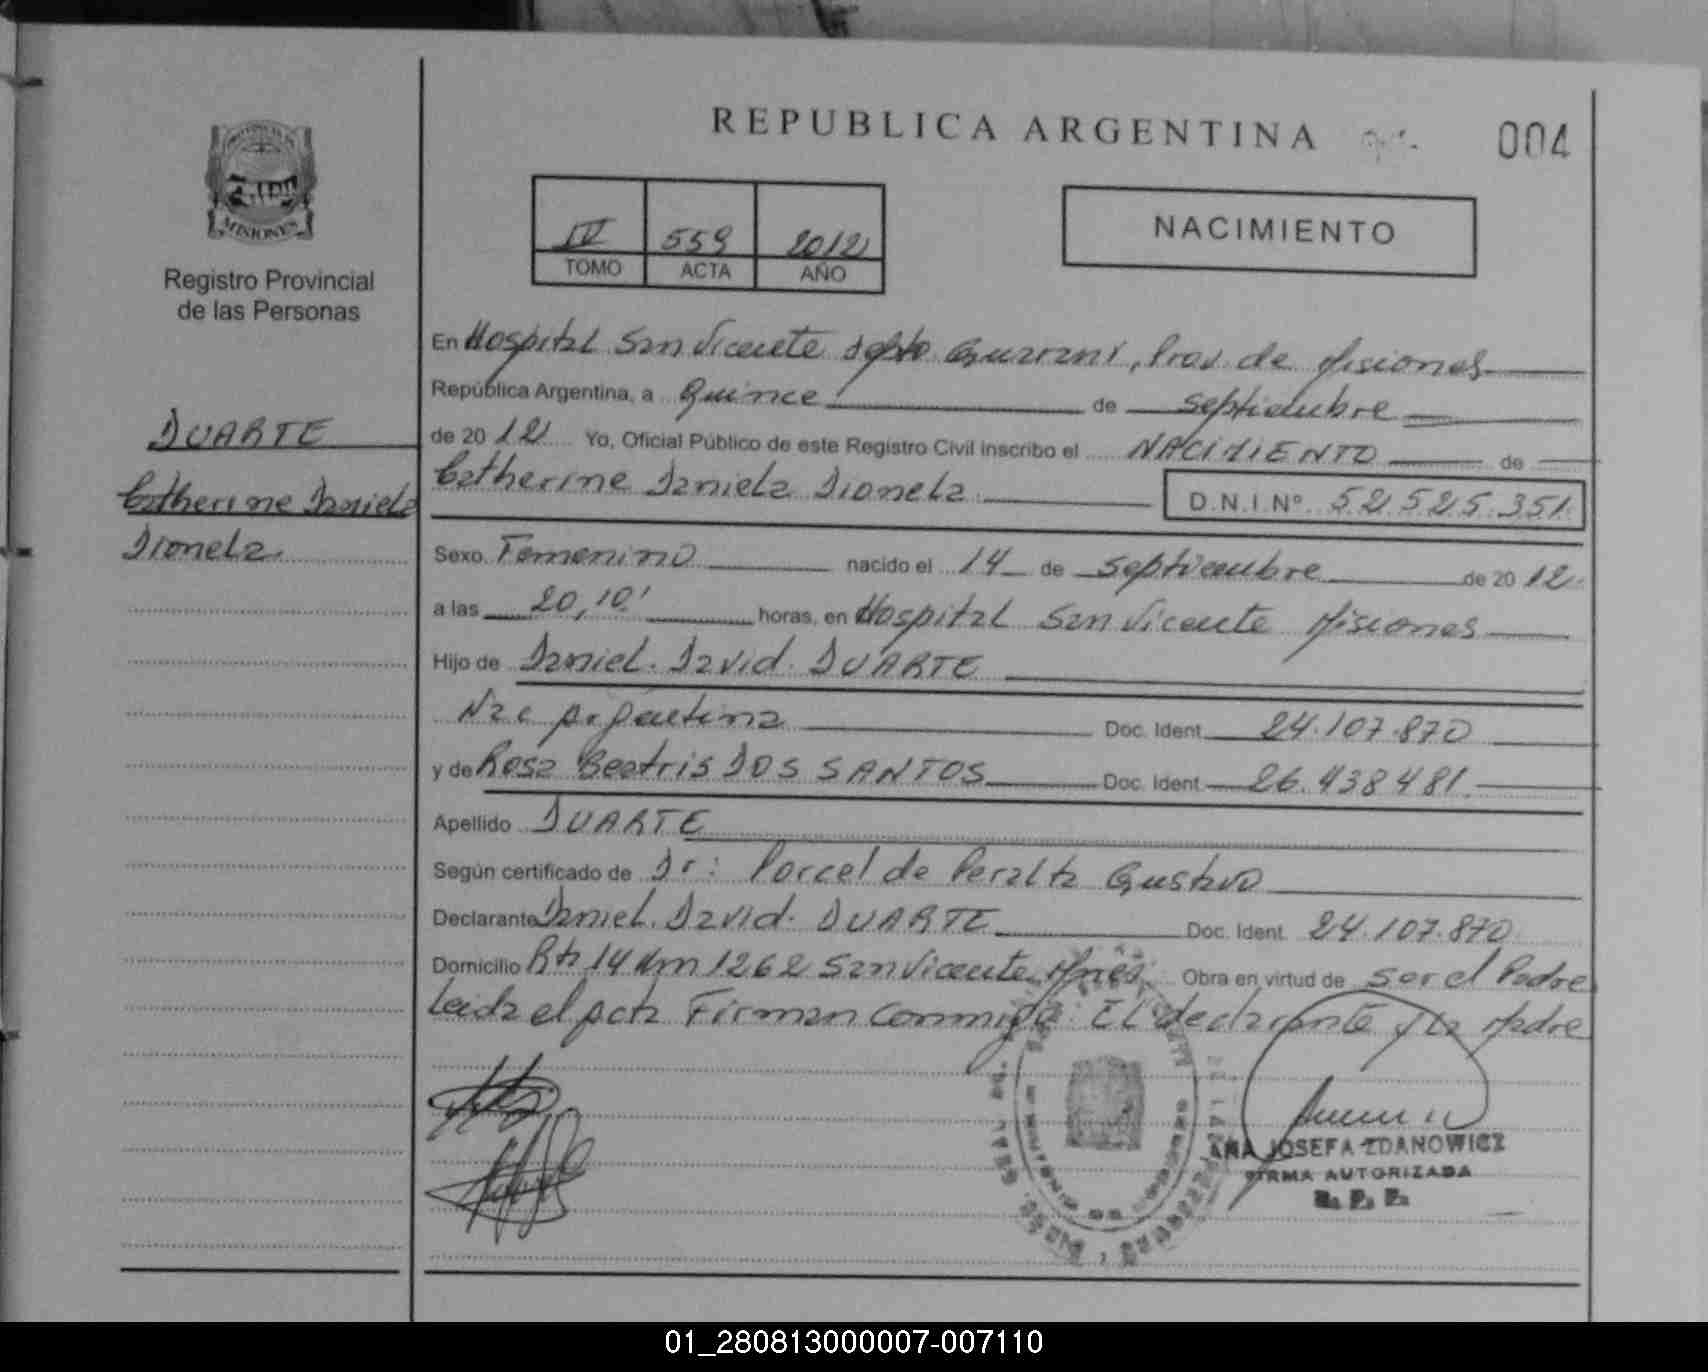 REPUBLICA ARGENTINA
004
MISIONES
Registro Provincial
de las Personas
IV 559 2012
TOMO ACTA AÑO
NACIMIENTO
DUARTE
Catherine Daniela
Dionela
En Hospital San Vicente Dpto Guarani, Prov. de Misiones
República Argentina, a Quince de septiembre
de 2012 Yo, Oficial Público de este Registro Civil inscribo el NACIMIENTO de
Catherine Daniela Dionela D.N.I.Nº 52525.351
Sexo. Femenino nacido el 14 de septiembre de 2012
a las 20,10' horas, en Hospital San Vicente Misiones
Hijo de Daniel David DUARTE
Nac Argentina Doc. Ident. 24.107.870
y de Rosa Beatris DOS SANTOS Doc. Ident. 26.438481
Apellido DUARTE
Según certificado de Dr: Porcel de Peralta Gustavo
Declarante Daniel David DUARTE Doc. Ident. 24.107.870
Domicilio Rta 14 Km 1262 San Vicente Mnes Obra en virtud de ser el Padre
Leida el acta Firman conmigo: El declarante y la Madre
ANA JOSEFA ZDANOWICZ
FIRMA AUTORIZADA
R. P. P.
01_280813000007-007110